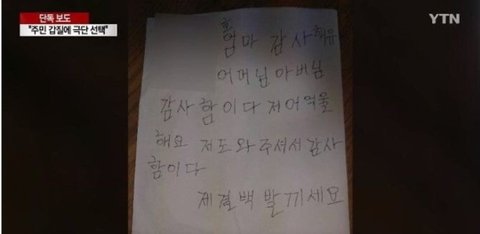 단독 보도
"주민 갑질에 극단 선택"
YTN
엄마 감사해유
어머님아버님
감사함이다 저어역울
해요 저도와주셔서 감사
함이다
제결백발끼세요